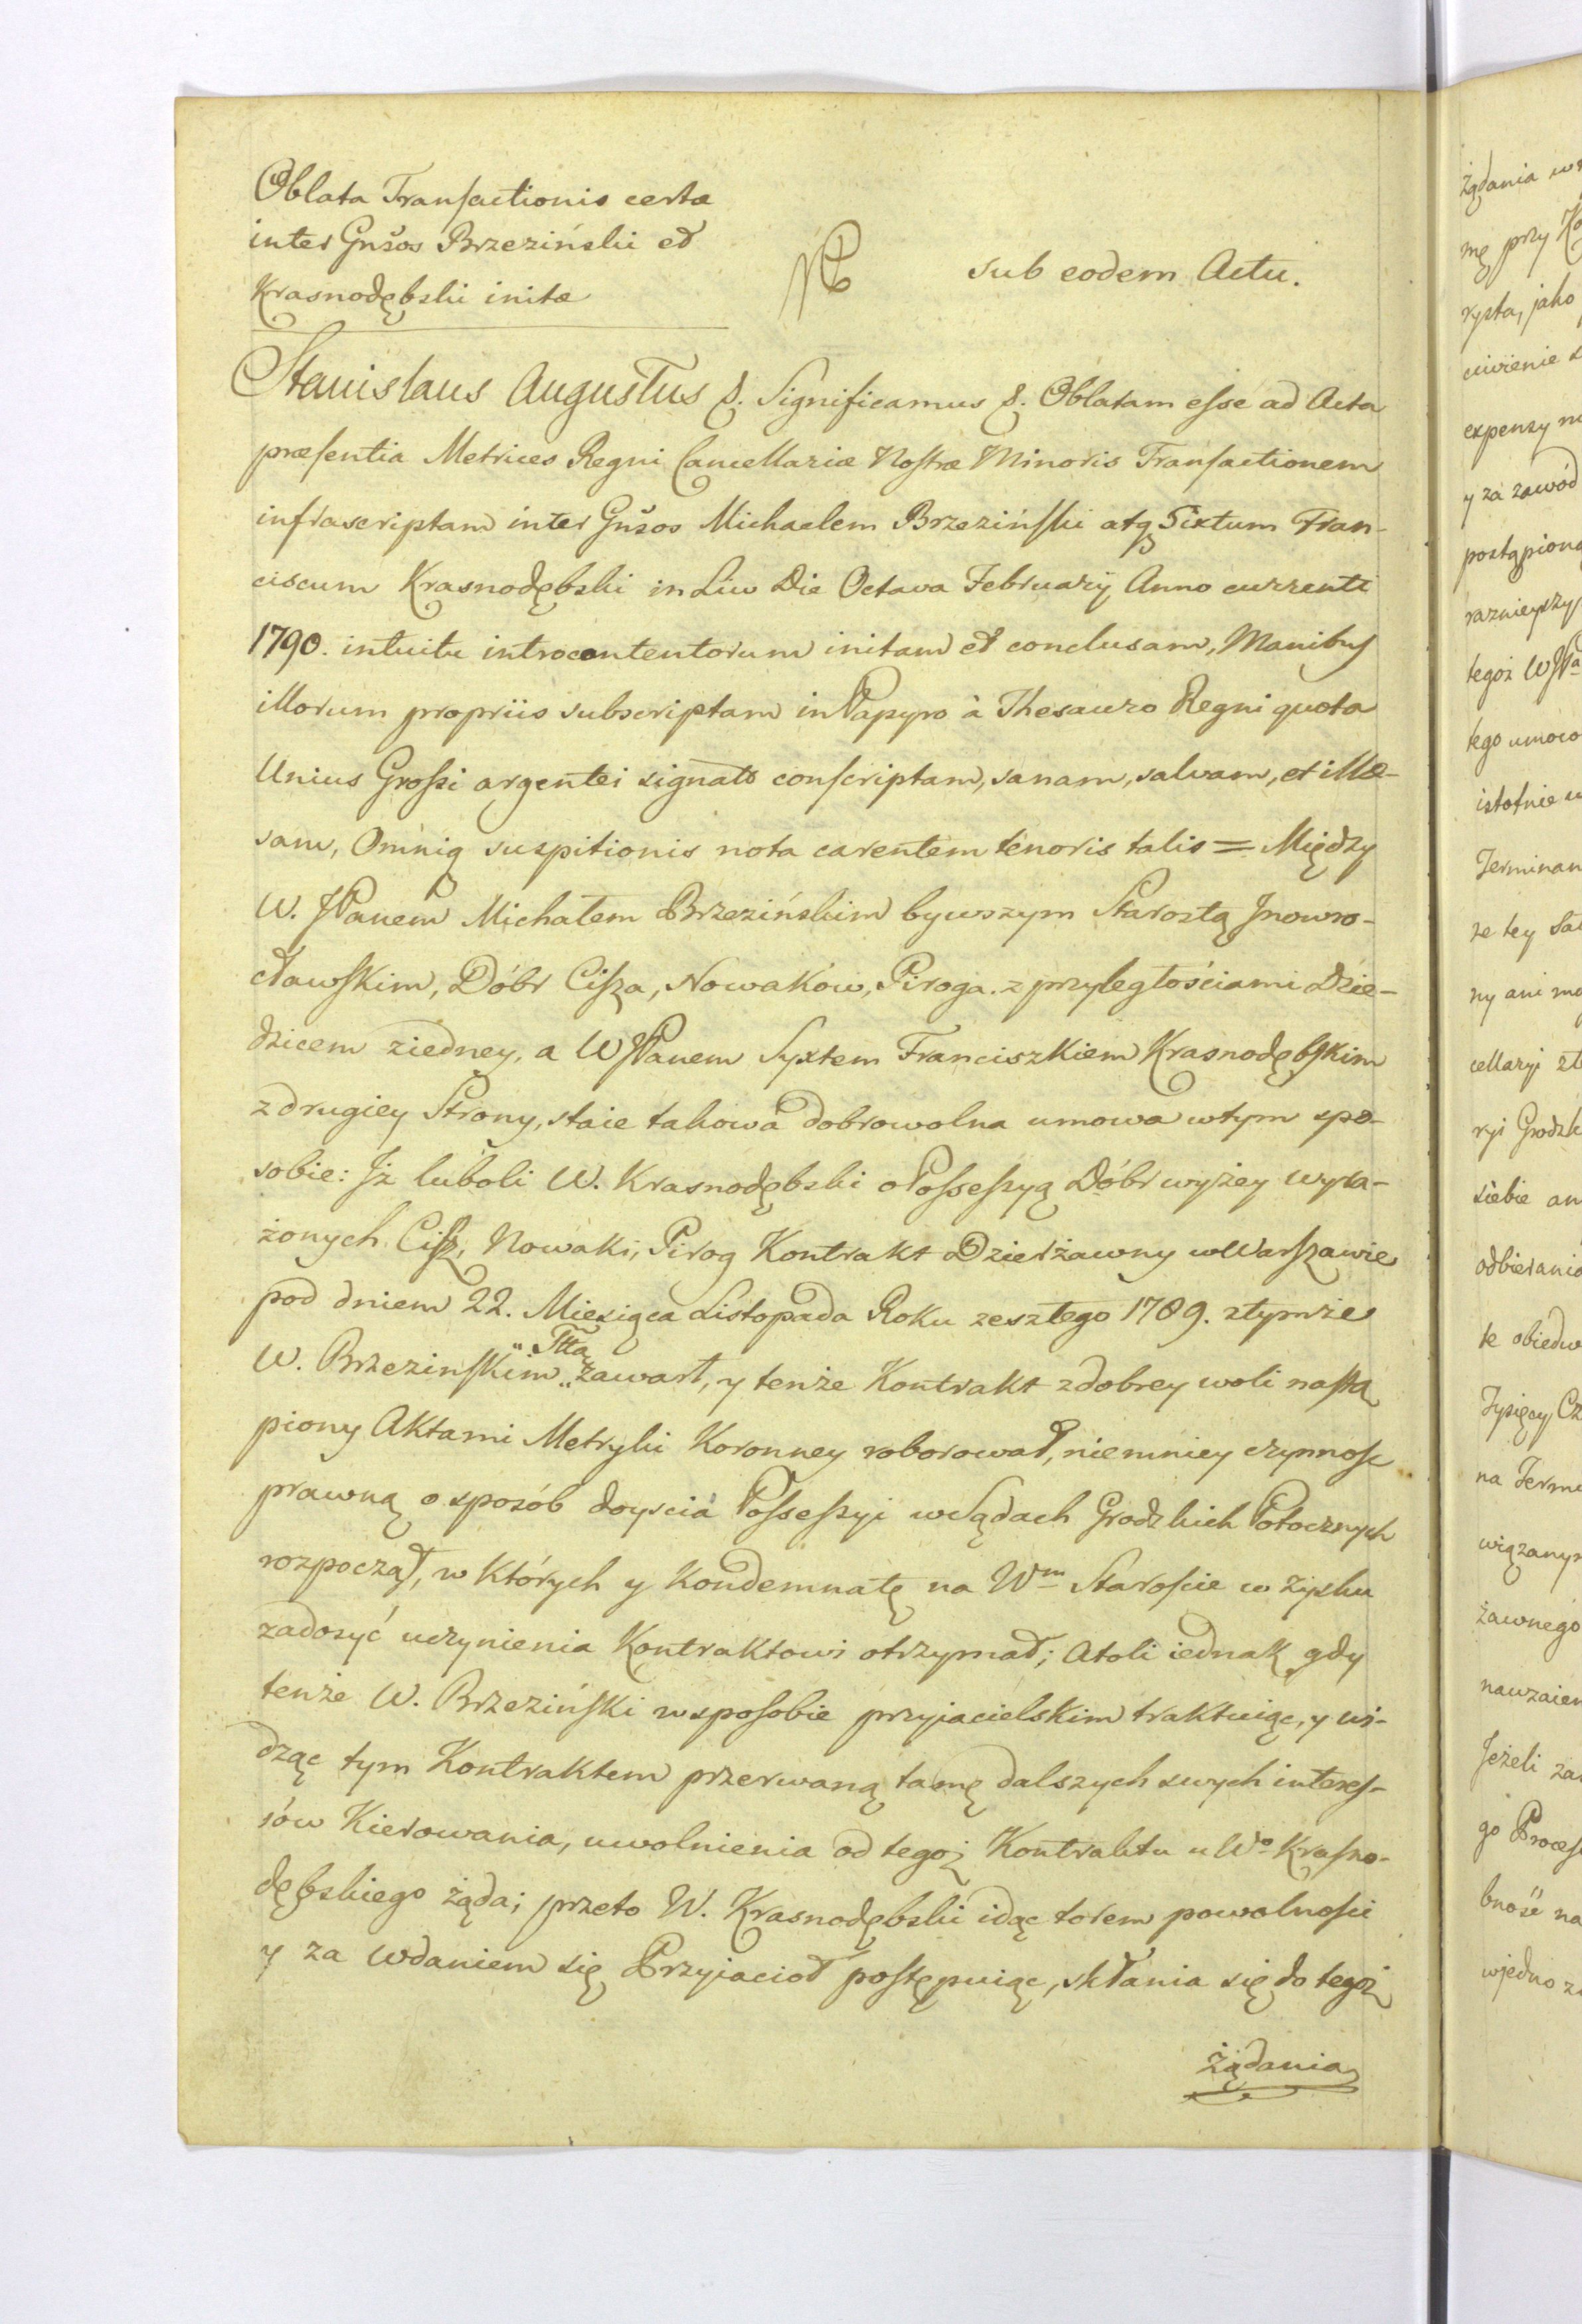 Oblata Transactionis certæ
inter Gnšos Brzeziński et
Krasnodębski initæ
sub eodem Actu.
Stanislaus Augustus &. Significamus &. Oblatam esse ad Acta
præsentia Metrices Regni Cancellariæ Nostræ Minoris Transactionem
infrascriptam inter Gnšos Michaelem Brzeziński atq Sixtum Fran-
ciscum Krasnodębski in Liw Die Octava Februarÿ Anno currenti
1790. intuitu introcontentorum initam et conclusam, Manibus
illorum propriis subscriptam in Papyro à Thesauro Regni quota
Unius Grossi argentei signato conscriptam, sanam, salvam, et illæ-
sam, Omniq suspitionis nota carentem tenoris talis = Między
W. JPanem Michałem Brzezińskim bywszym Starostą Jnowro-
cławskim, Dóbr Cisza, Nowaków, Piroga. z przyległościami Dzie-
dzicem ziedney, a WJPanem Syxtem Franciszkiem Krasnodębskim
z drugiey Strony, staie takowa dobrowolna umowa wtym spo-
sobie: Jż luboli W. Krasnodębski o Possessyą Dóbr wyżey wyra-
żonych Cisz, Nowaki, Pirog Kontrakt Dzierżawny w Warszawie
pod dniem 22. Miesiąca Listopada Roku zeszłego 1789. ztymże
W. Brzezinskim „Sttą„ zawarł, y tenże Kontrakt zdobrey woli nastą
piony Aktami Metryki Koronney roborował, niemniey czynnosc
prawną o sposób doyscia Possessyi w Sądach Grodzkich Potocznych
rozpoczął, w Których y Kondemnatę na Wm Staroscie w zysku
zadosyć uczynienia Kontraktowi otrzymał; Atoli iednak gdy
tenże W. Brzeziński w sposobie przyjacielskim traktuiąc, y wi-
dząc tym Kontraktem przerwaną tamę dalszych swych interes-
sów Kierowania, uwolnienia od tegoż Kontraktu u Wo Krasno-
dębskiego żąda; przeto W. Krasnodębski idąc torem powolnosci
y za wdaniem się Przyiacioł postępuiąc, skłania się do tegoż
żądania
żądania
mę przy
rysta, jako
expensy
y za zawód
postąpioną
raznieyszy
tegoż WJPa
tego umoco
istotnie
Terminan
ze tey
ny ani
cellaryi
ryi Grodzk
siebie an
odbierania
te obiedw
Tysięcy
na Term
wiązanym
żawnego
nawzaiem
Jeżeli za
go Process
bność na
wjedno